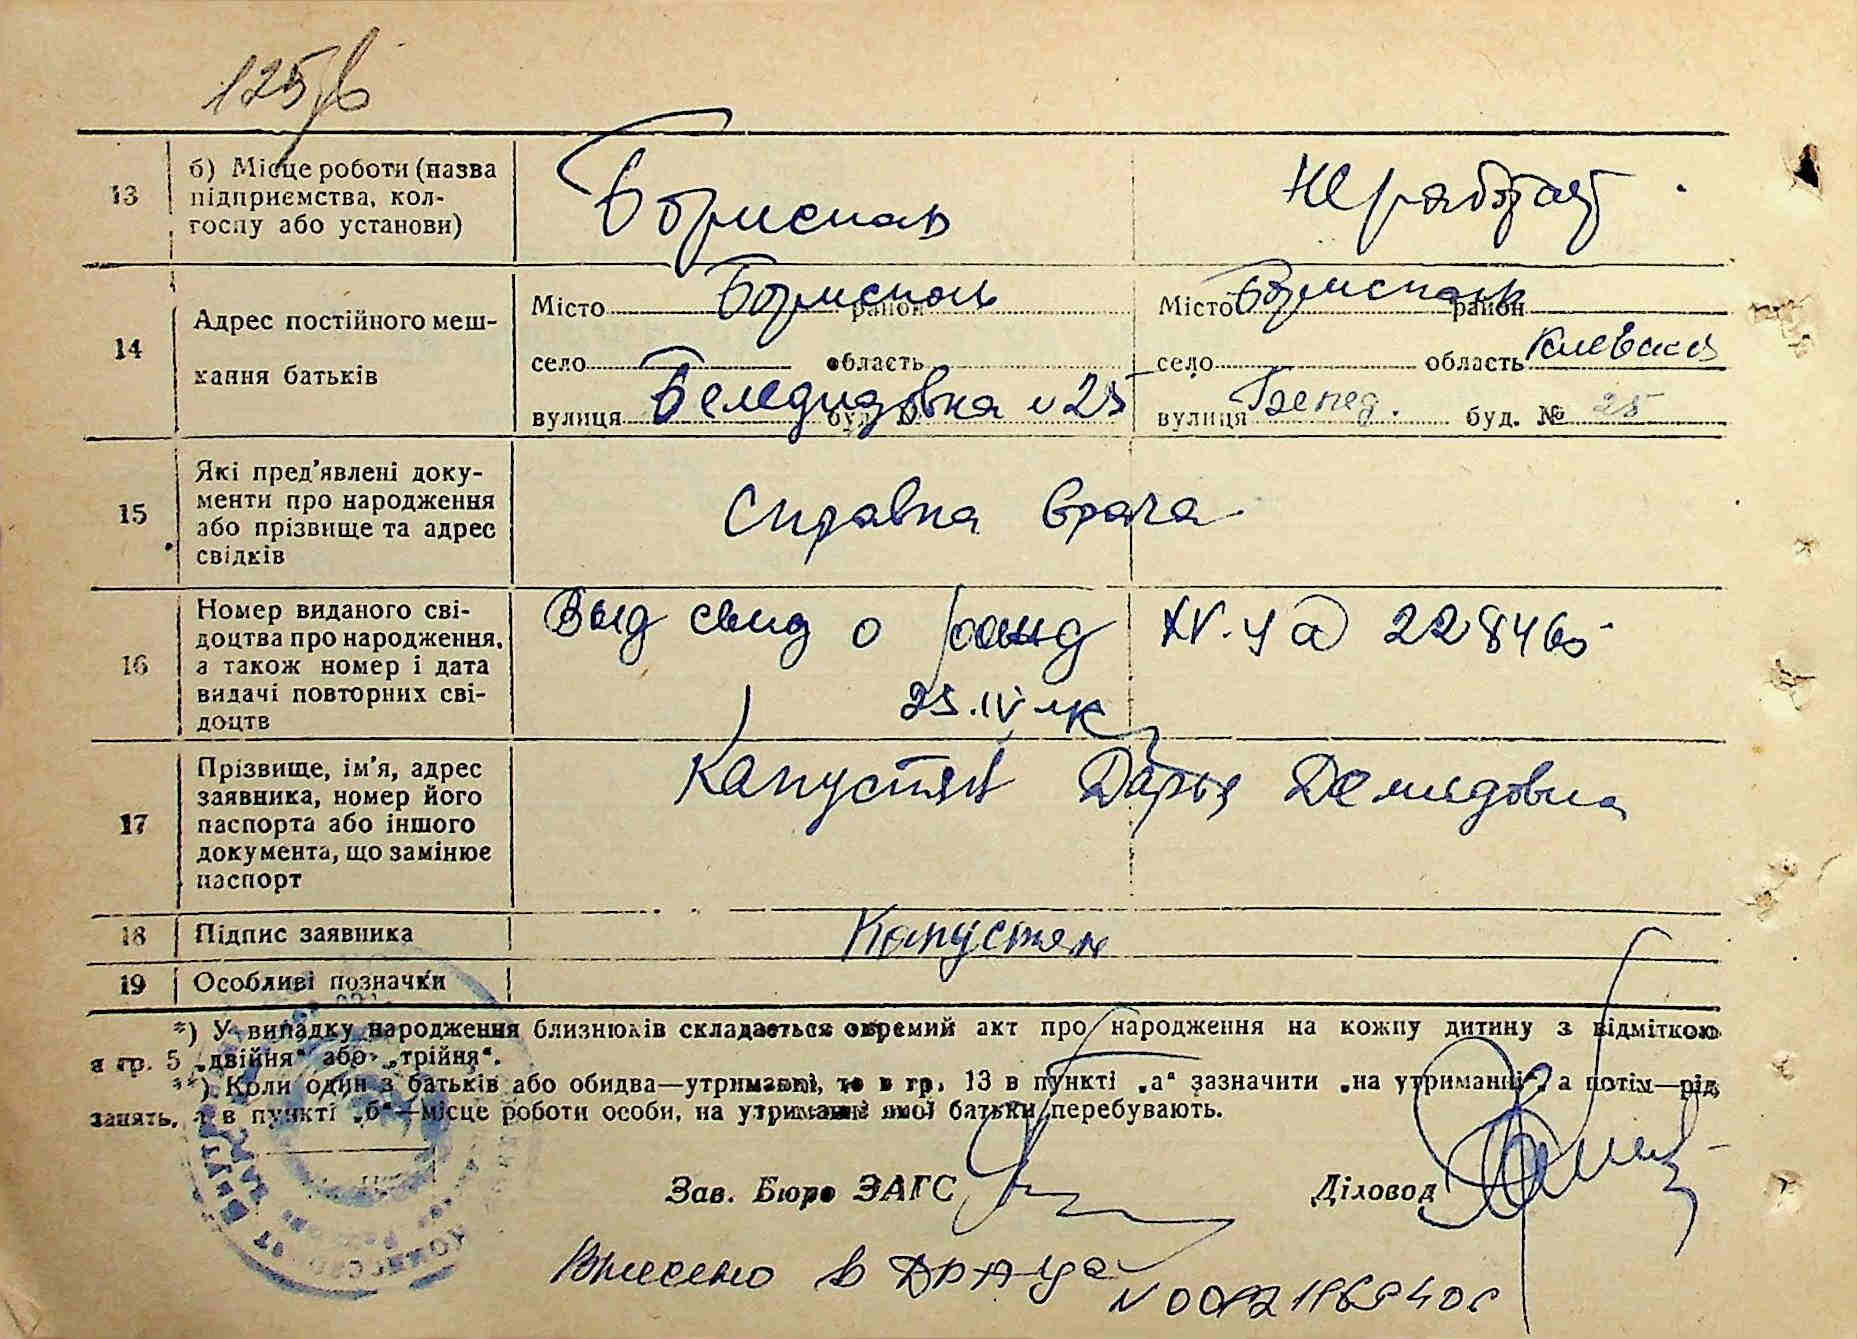 125/6
13 б) Місце роботи (назва підприємства, колгоспу або установи)
Бориспол
не работает
14 Адрес постійного мешкання батьків
Місто Бориспол район
село область
вулиця буд. № 25
Місто Борисполь район
село область Киевская
вулиця буд. № 25
15 Які пред'явлені документи про народження або прізвище та адрес свідків
Справка врача
16 Номер виданого свідоцтва про народження, а також номер і дата видачі повторних свідоцтв
Выд свид о рожд
25.IV
17 Прізвище, ім'я, адрес заявника, номер його паспорта або іншого документа, що замінює паспорт
Капустян Дарья Демидовна
18 Підпис заявника
Капустян
19 Особливі позначки
*) У випадку народження близнюків складається окремий акт про народження на кожну дитину з відміткою
в гр. 5 „двійня“ або „трійня“.
**) Коли один з батьків або обидва—утриманці, то в гр. 13 в пункті „а“ зазначити „на утриманні“, а потім—рід
занять, а в пункті „б“—місце роботи особи, на утриманні якої батьки перебувають.
Зав. Бюро ЗАГС
Діловод
Внесено в ДРАЦС